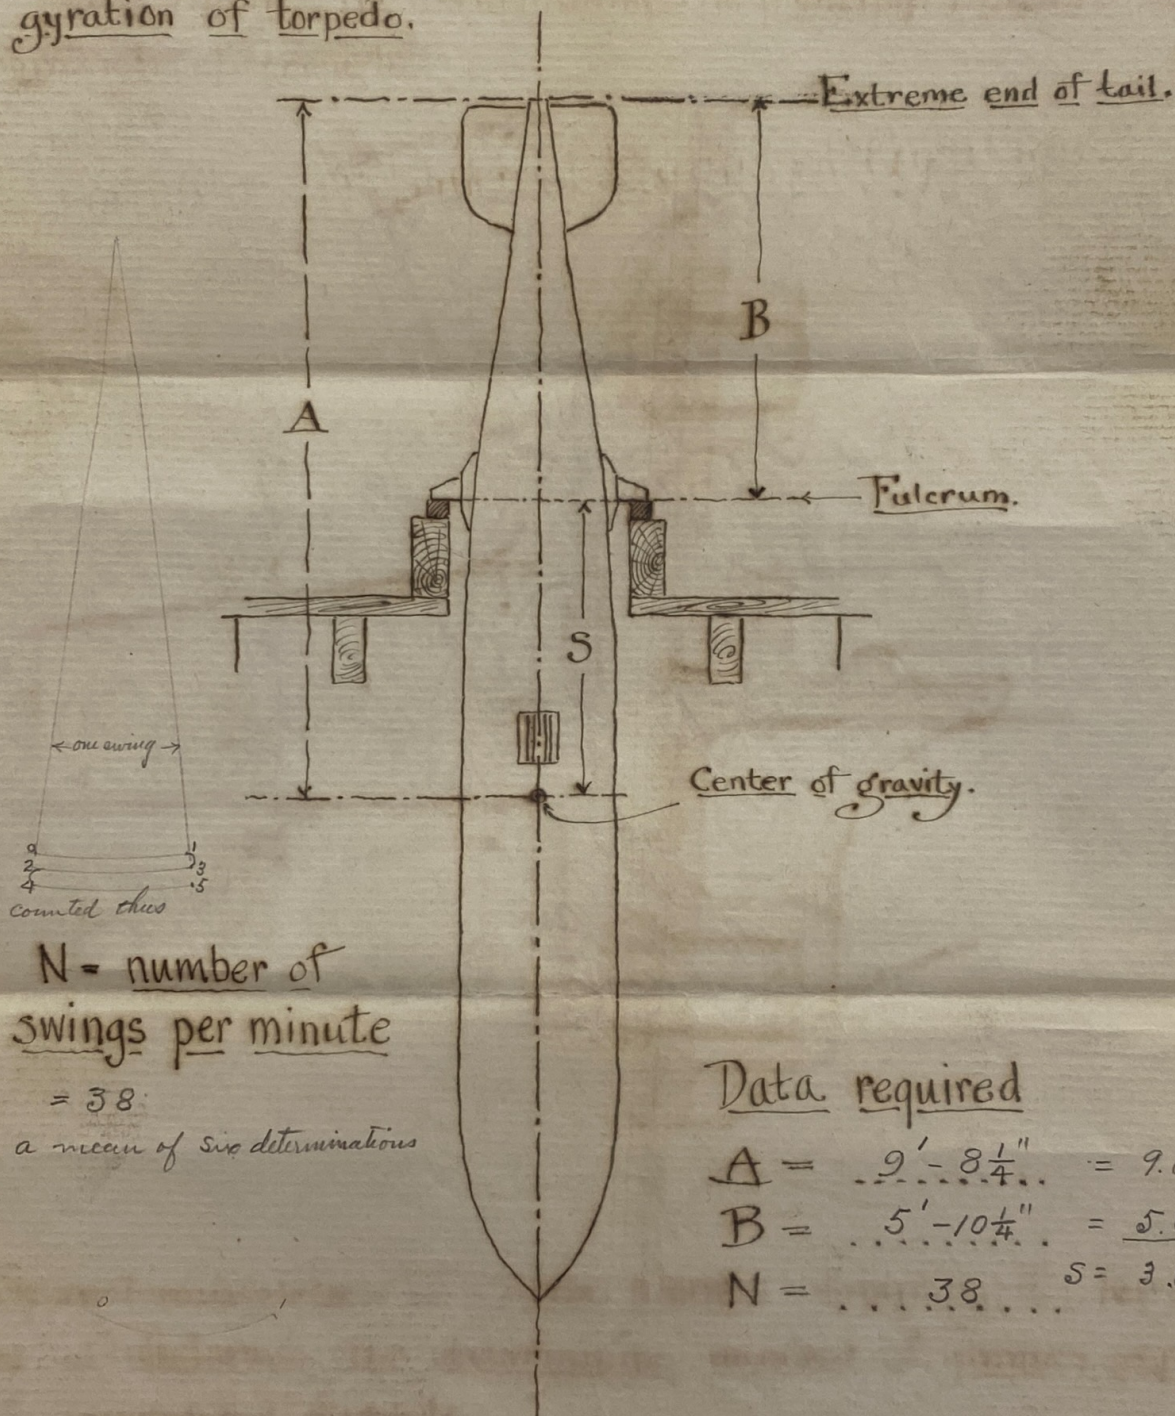 gyration of torpedo.
Extreme end of tail.
B
A
Fulcrum.
S
one swing
Center of gravity.
0 1
2 3
4 5
counted thus
N = number of
swings per minute
= 38
a mean of six determinations
Data required
A = 9' - 8 1/4" = 9.
B = 5' - 10 1/4" = 5.
S = 3.
N = 38
0 1